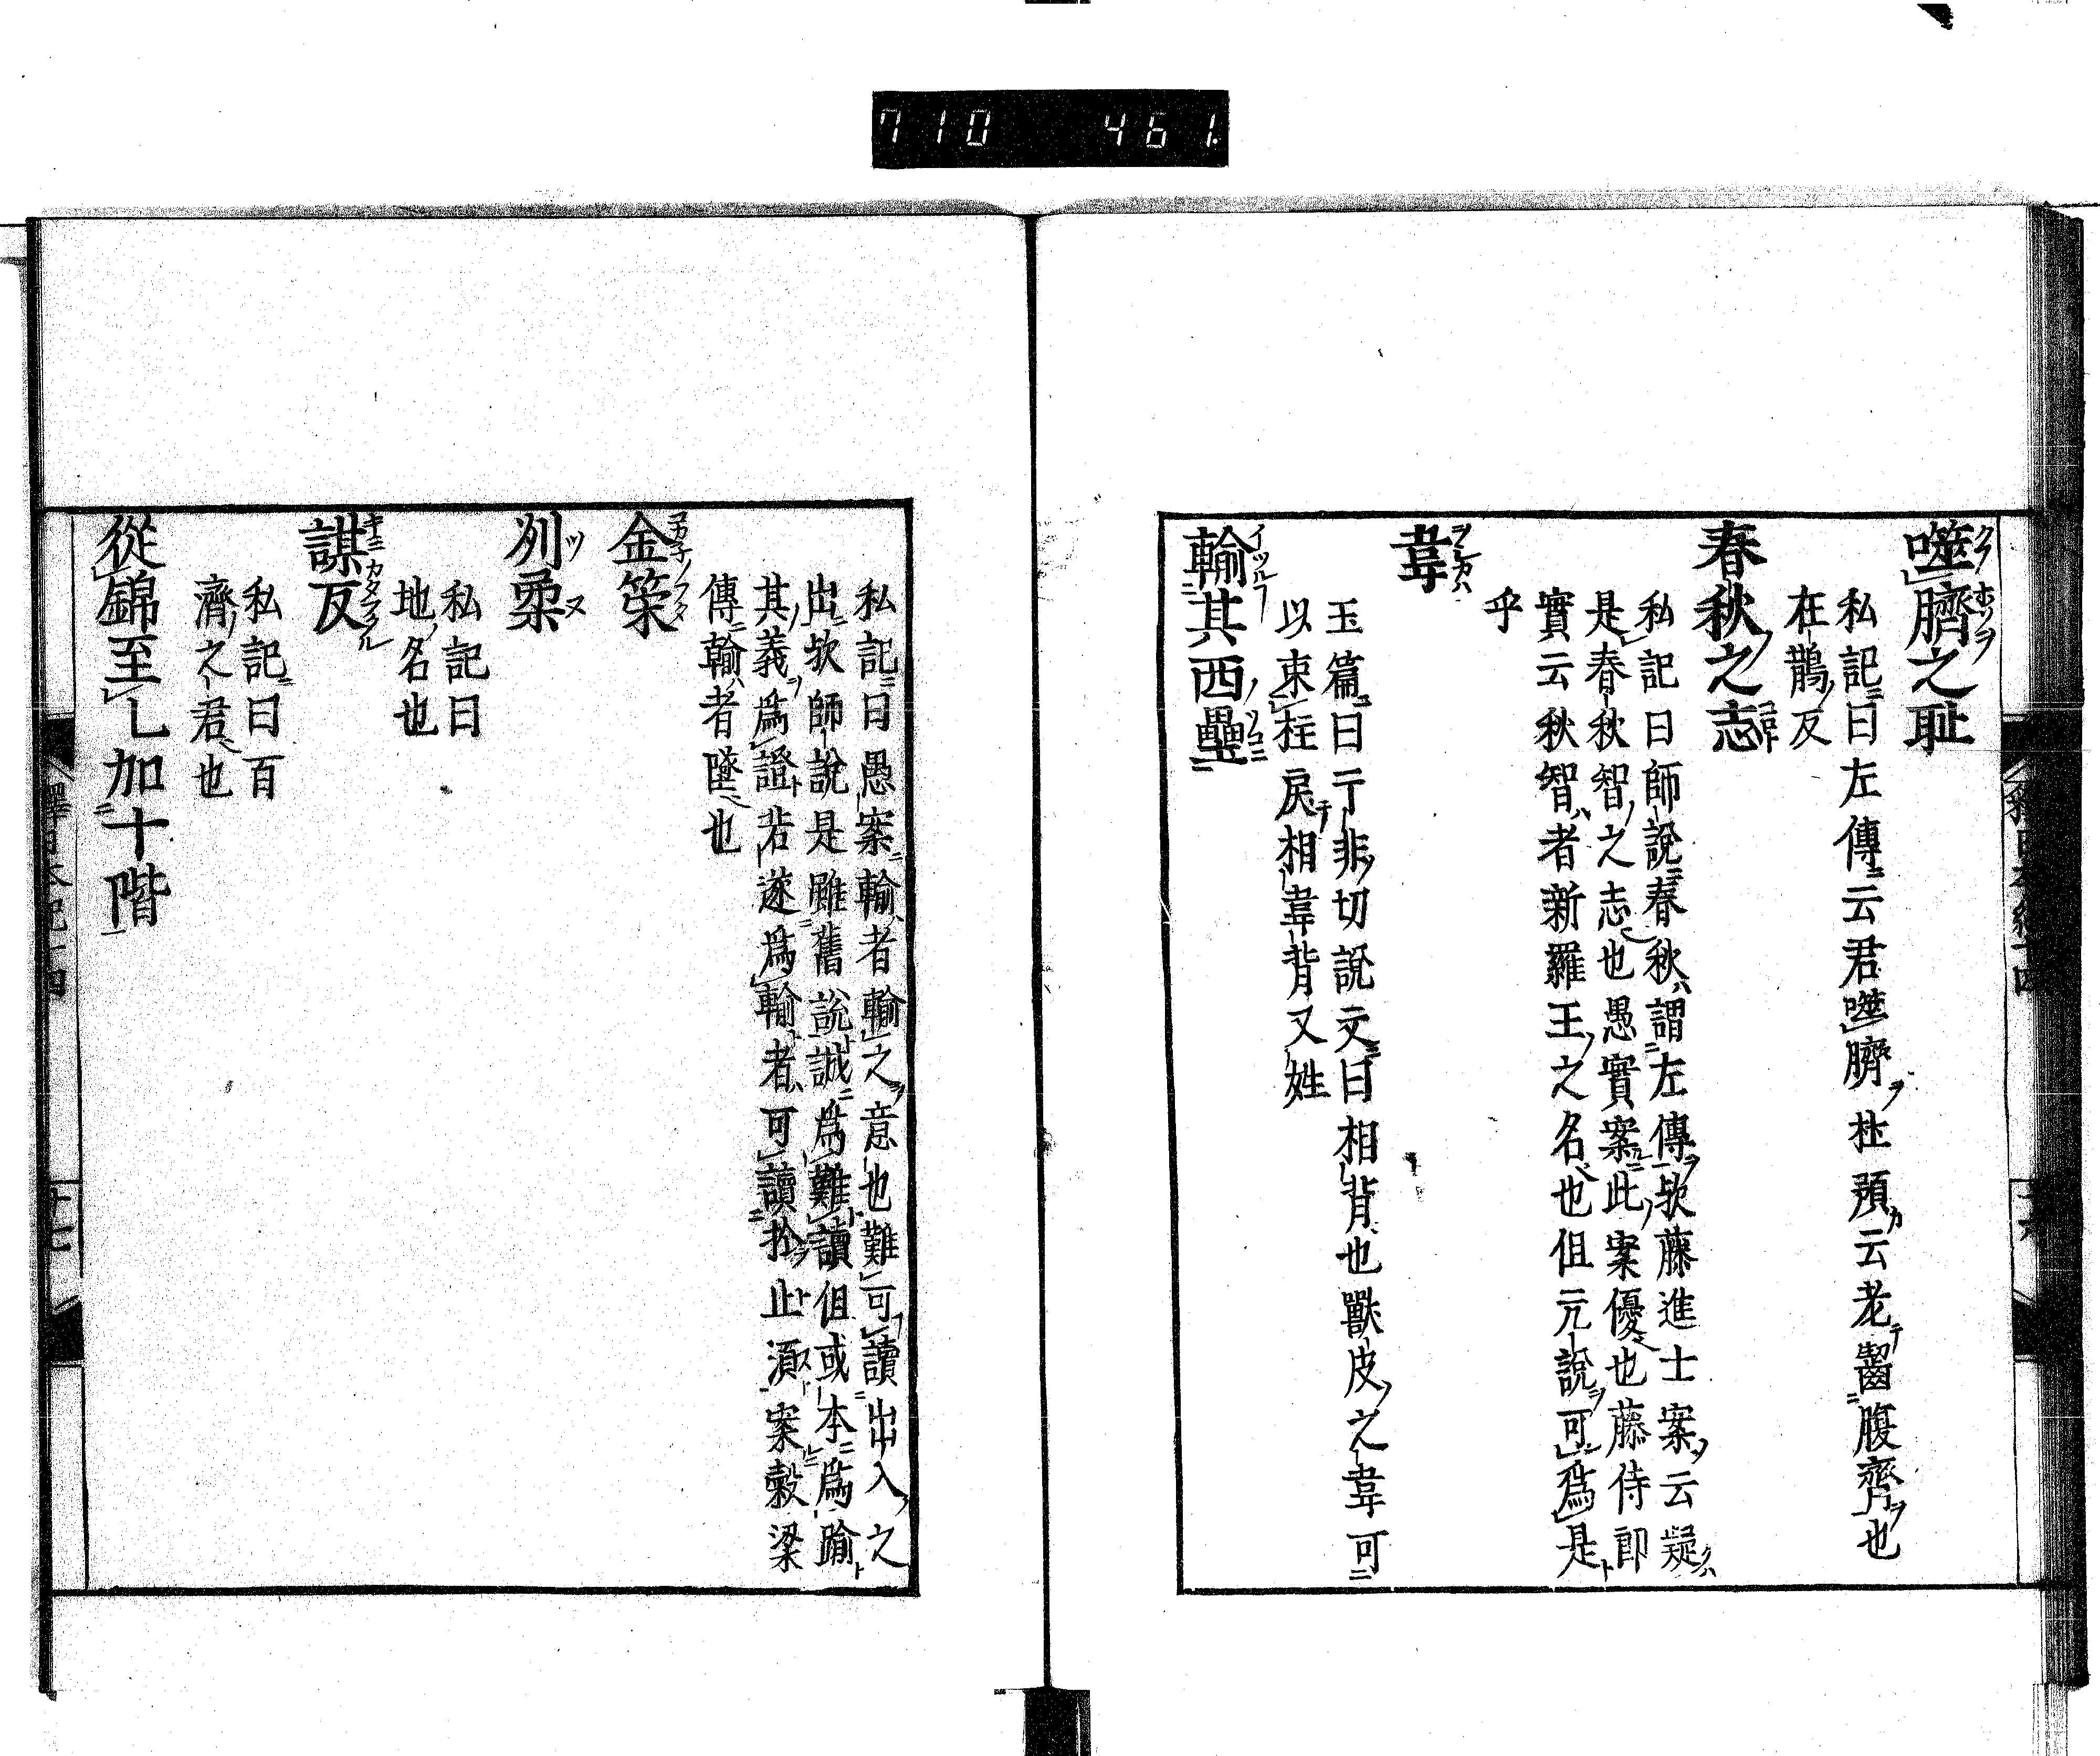 710 461
噬臍之耻
私記曰左傳云君噬臍杜預云老齧腹齊也
在鵲反
春秋之志
私記曰師說春秋謂左傳欤藤進士案云疑
是春秋智之志也愚實案此案優也藤侍郎
實云秋智者新羅王之名也但元說可爲是
乎
韋
玉篇曰亍非切說文曰相背也獸皮之韋可
以束枉戾相韋背又姓
輸其西壘
私記曰愚案輸者輸之意也難可讀出入之
出欤師說是雖舊說誠爲難讀但或本爲踰
其義爲證若遂爲輸者可讀於止須案穀梁
傳輸者墜也
金策
列柔
私記曰
地名也
謀反
私記曰百
濟之君也
從錦至乚加十階
釋日本紀十四
十七